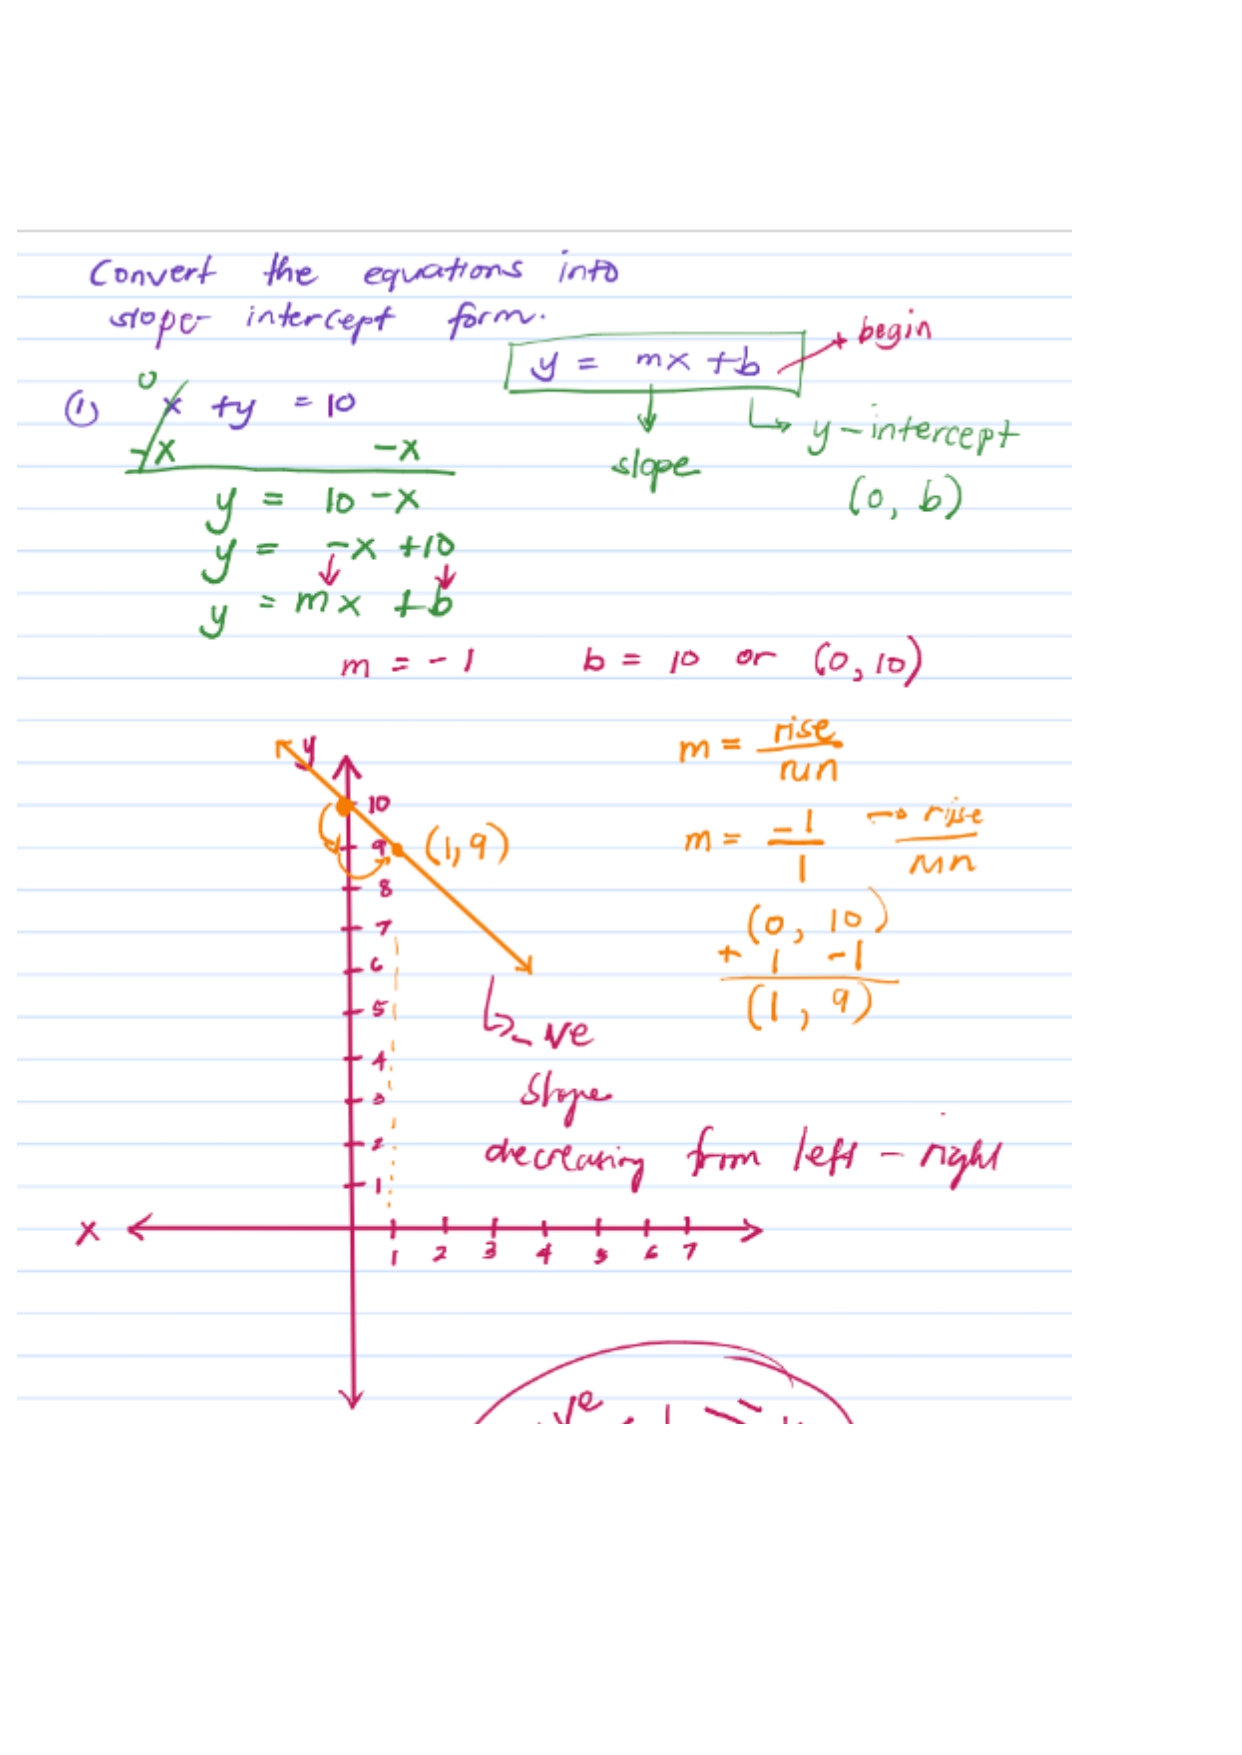 Convert the equations into
slope- intercept form.
y = mx + b
begin
slope
y-intercept
(0, b)
① x + y = 10
0
-x -x
y = 10 - x
y = -x + 10
y = mx + b
m = -1 b = 10 or (0, 10)
m = rise
run
m = -1
1
rise
run
(0, 10)
+ 1 -1
(1, 9)
y
10
9
(1, 9)
8
7
6
5
4
3
2
1
x
1 2 3 4 5 6 7
-ve
slope
decreasing from left - right
ve